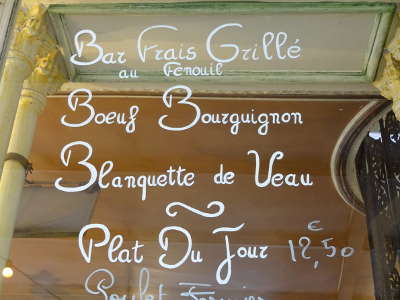 Bar Frais Grillé
au Fenouil
Boeuf Bourguignon
Blanquette de Veau
Plat Du Jour 12,50 €
Poulet Fermier